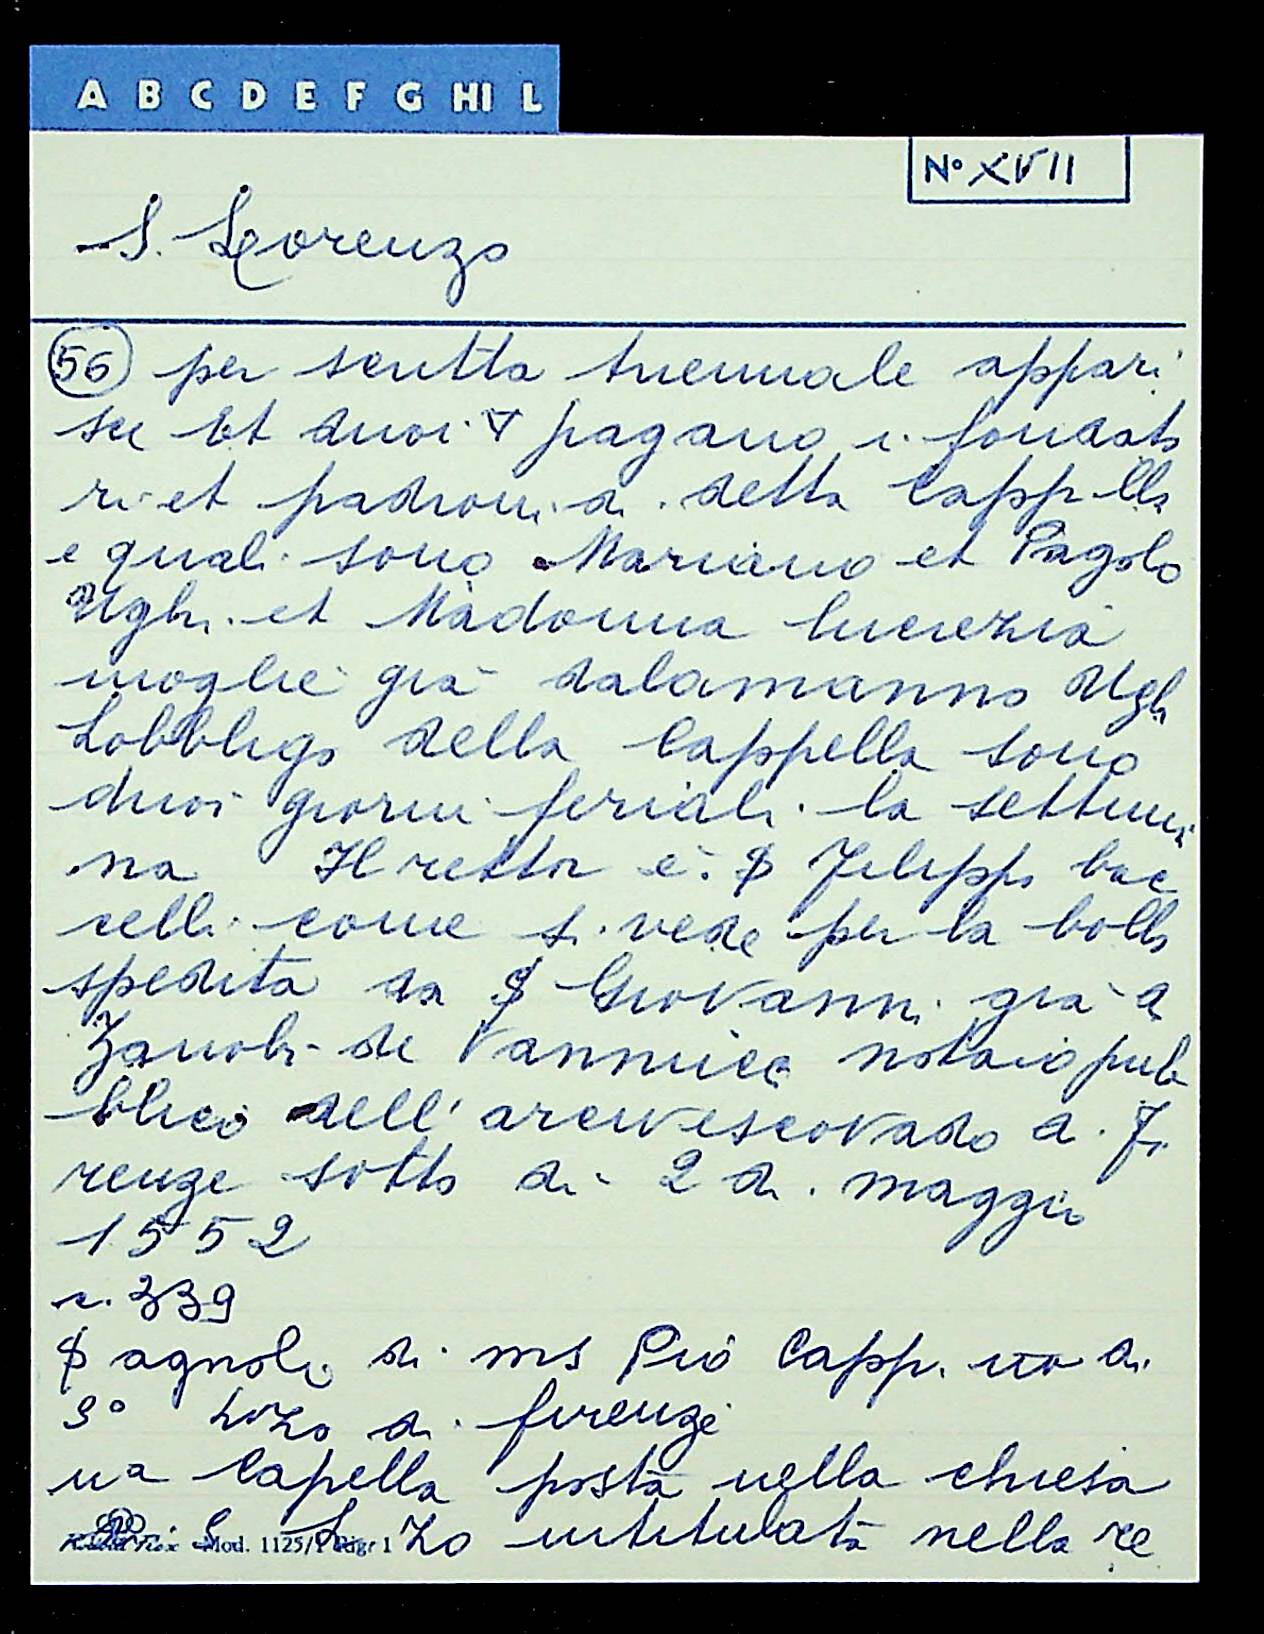 A B C D E F G HI L
Nº XVII
S. Lorenzo
56 per scritta triennale appari
sce et duoi ∇ pagano i fondato
ri et padroni di detta Cappella
e quali sono Mariano et Pagolo
Ughi et Madonna lucrezia
moglie già dalamanno Ughi
Lobbligo della Cappella sono
duoi giorni feriali la settima
na Il rettor è $ Filippo bac
celli come si vede per la bolla
spedita da $ Giovanni già
Zanobi de Vannucci notaio pub
blico dell'arcivescovado di Fi
renze sotto di 2 di maggio
1552
c. 339
$ agnolo di ms Piò Capp.no di
So Lozo di firenze
una Capella posta nella chiesa
di S Lozo intitulata nella re
Mod. 1125/1 Rig. 1